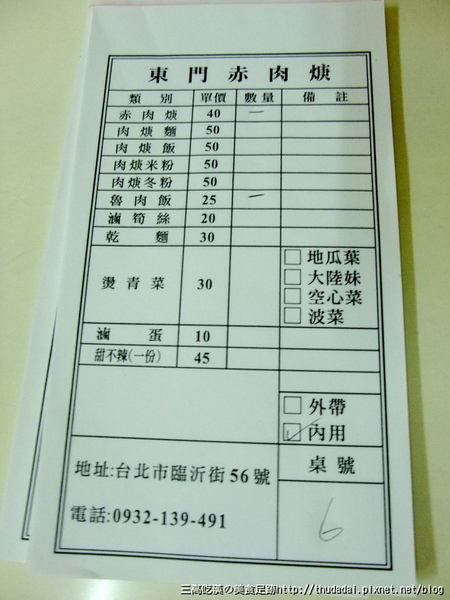 東門赤肉焿
類別 單價 數量 備註
赤肉焿 40 一
肉焿麵 50
肉焿飯 50
肉焿米粉 50
肉焿冬粉 50
魯肉飯 25 一
滷筍絲 20
乾麵 30
燙青菜 30
□ 地瓜葉
□ 大陸妹
□ 空心菜
□ 波菜
滷蛋 10
甜不辣(一份) 45
□ 外帶
☑ 內用
地址:台北市臨沂街56號
電話:0932-139-491
桌號
6
三高吃漢の美食足跡http://thudadai.pixnet.net/blog